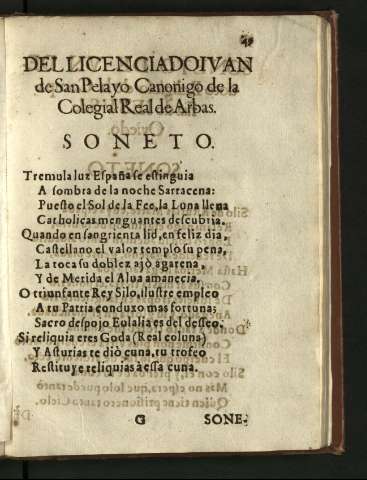 49
DEL LICENCIADO IVAN
de San Pelayo Canonigo de la
Colegial Real de Arbas.
SONETO.
Tremula luz España se estinguia
A sombra de la noche Sarracena:
Puesto el Sol de la Fee, la Luna llena
Catholicas menguantes descubria.
Quando en sangrienta lid, en feliz dia,
Castellano el valor templò su pena,
La toca su doblez ajò agarena,
Y de Merida el Alua amanecia,
O triunfante Rey Silo, ilustre empleo
A tu Patria conduxo mas fortuna;
Sacro despojo Eulalia es del desseo.
Si reliquia eres Goda (Real coluna)
Y Asturias te diò cuna, tu trofeo
Restituye reliquias à essa cuna.
G SONE-